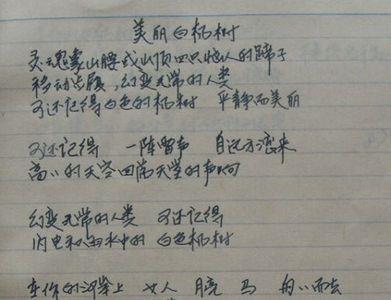 美丽白杨树
灵魂象山腰或山顶四只恼人的蹄子
移动步履，幻变无常的人类
可还记得白色的杨树 平静而美丽
可还记得 一阵雷声 自远方滚来
高高的天空回荡天堂的声响
幻变无常的人类 可还记得
闪电和雨水中的 白色杨树
在你的河岸上 女人 月亮 马 而去